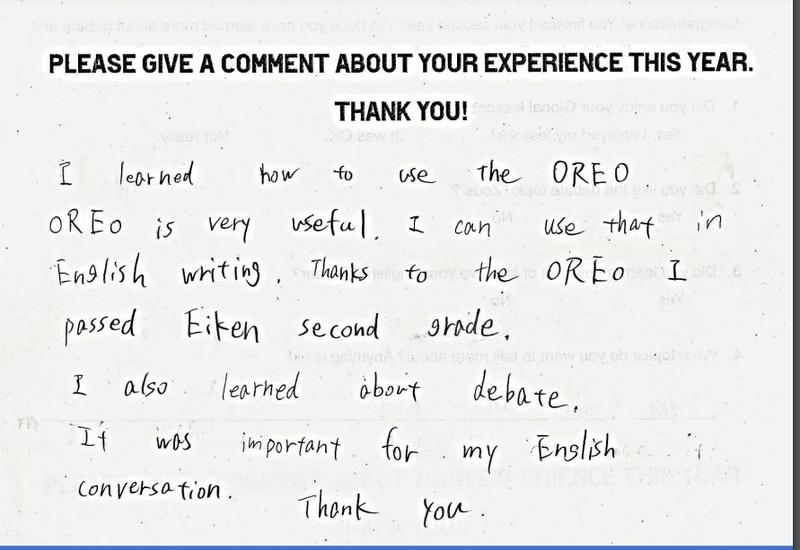 PLEASE GIVE A COMMENT ABOUT YOUR EXPERIENCE THIS YEAR.
THANK YOU!
I learned how to use the OREO.
OREO is very useful. I can use that in
English writing. Thanks to the OREO I
passed Eiken second grade.
I also learned about debate.
It was important for my English
conversation. Thank you.